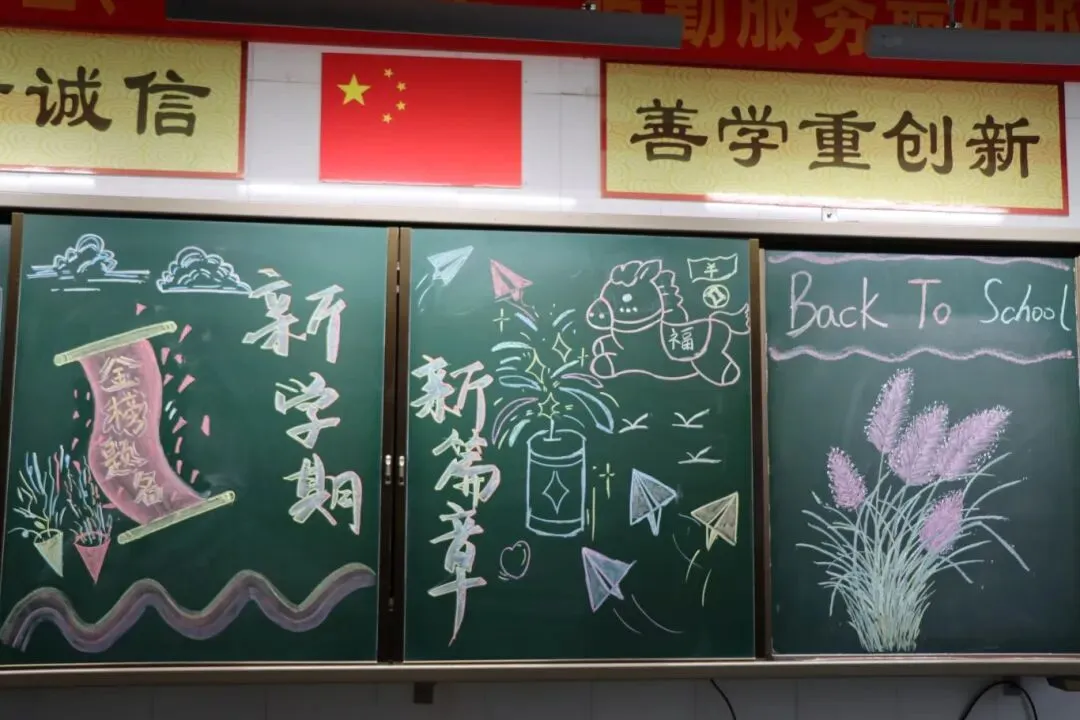 勤服务
诚信
善学重创新
金榜题名
新学期
新篇章
福
羊
Back To School